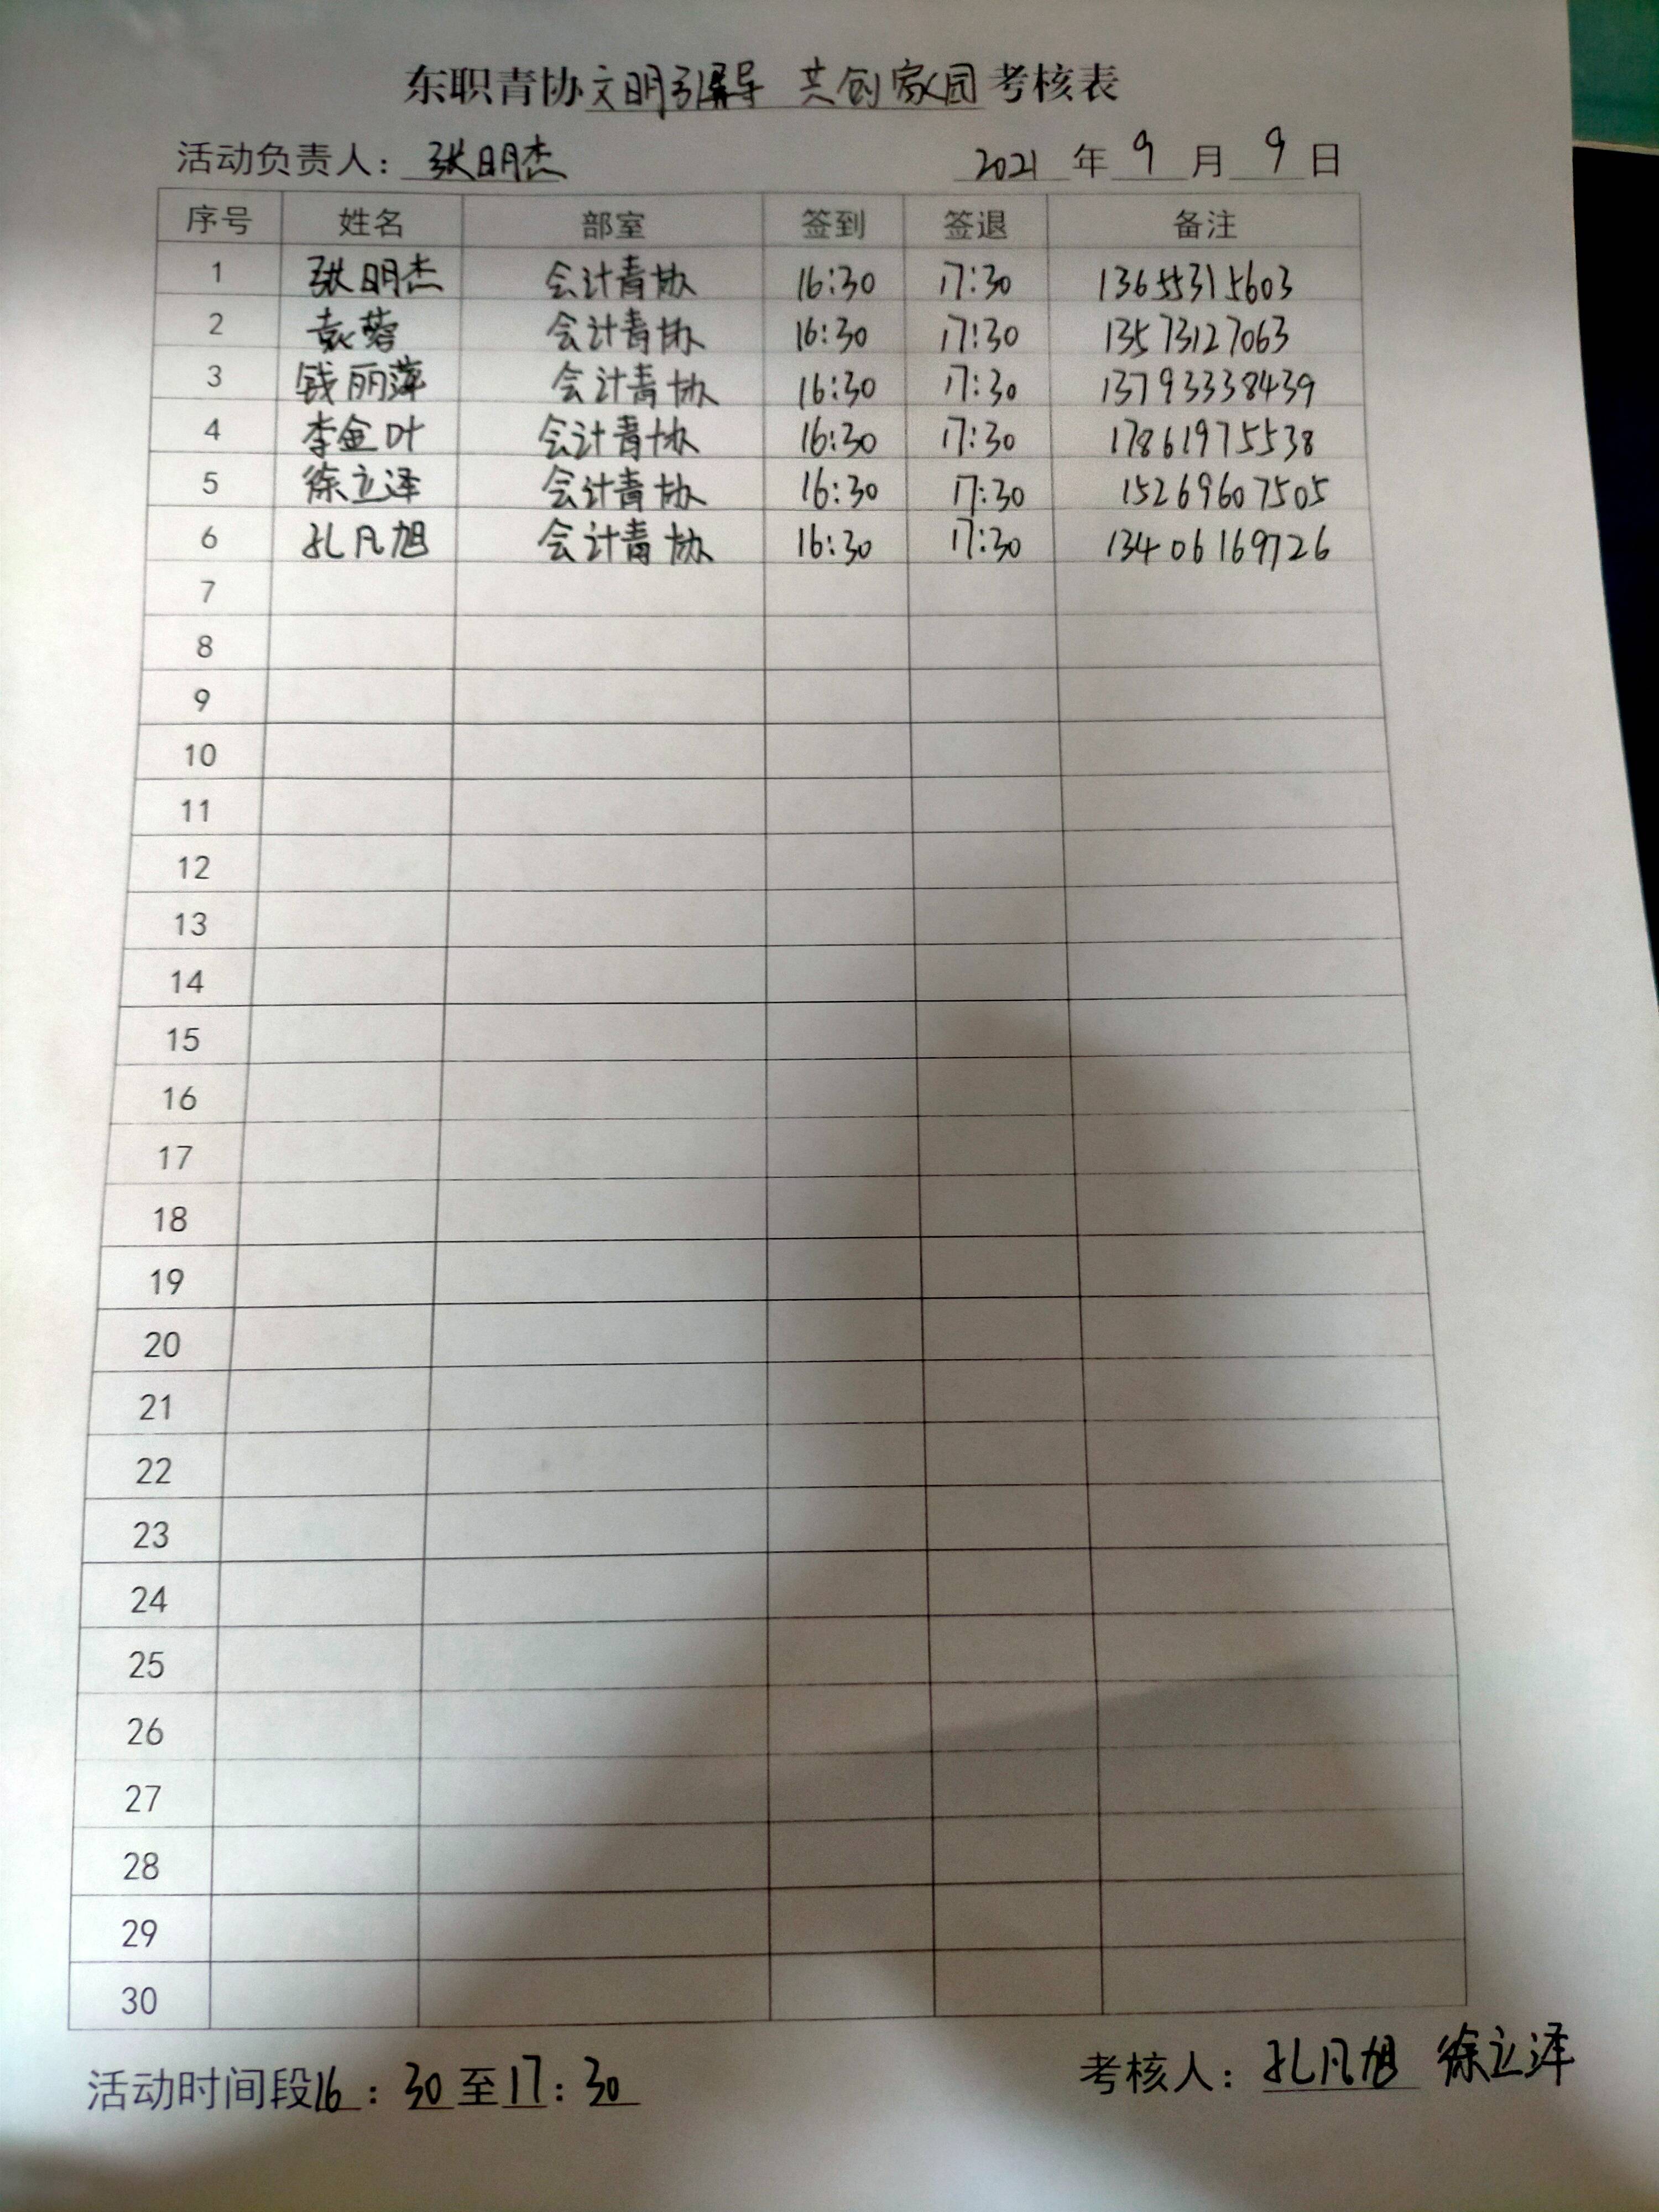 东职青协文明引导 共创家园考核表
活动负责人：张明杰 2021年9月9日
序号 姓名 部室 签到 签退 备注
1 张明杰 会计青协 16:30 17:30 13655315603
2 袁蓉 会计青协 16:30 17:30 13573127063
3 钱丽萍 会计青协 16:30 17:30 13793338439
4 李金叶 会计青协 16:30 17:30 17861975538
5 徐立泽 会计青协 16:30 17:30 15269607505
6 孔凡旭 会计青协 16:30 17:30 13406169726
7
8
9
10
11
12
13
14
15
16
17
18
19
20
21
22
23
24
25
26
27
28
29
30
活动时间段16：30至17：30 考核人：孔凡旭 徐立泽